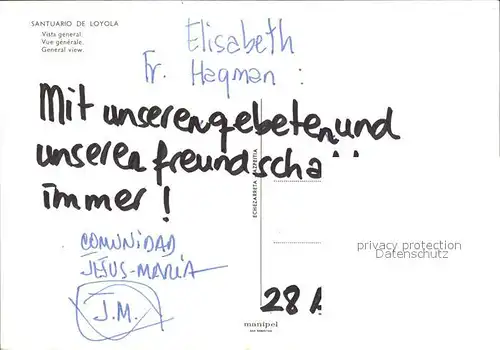 SANTUARIO DE LOYOLA
Vista general.
Vue générale.
General view.
Elisabeth
Fr. Hagman :
Mit unseren gebeten und
unserer freundscha
immer !
COMUNIDAD
JESUS-MARIA
J.M.
28 A
ECHEZARRETA
AZPEITIA
manipel
SAN SEBASTIAN
privacy protection
Datenschutz